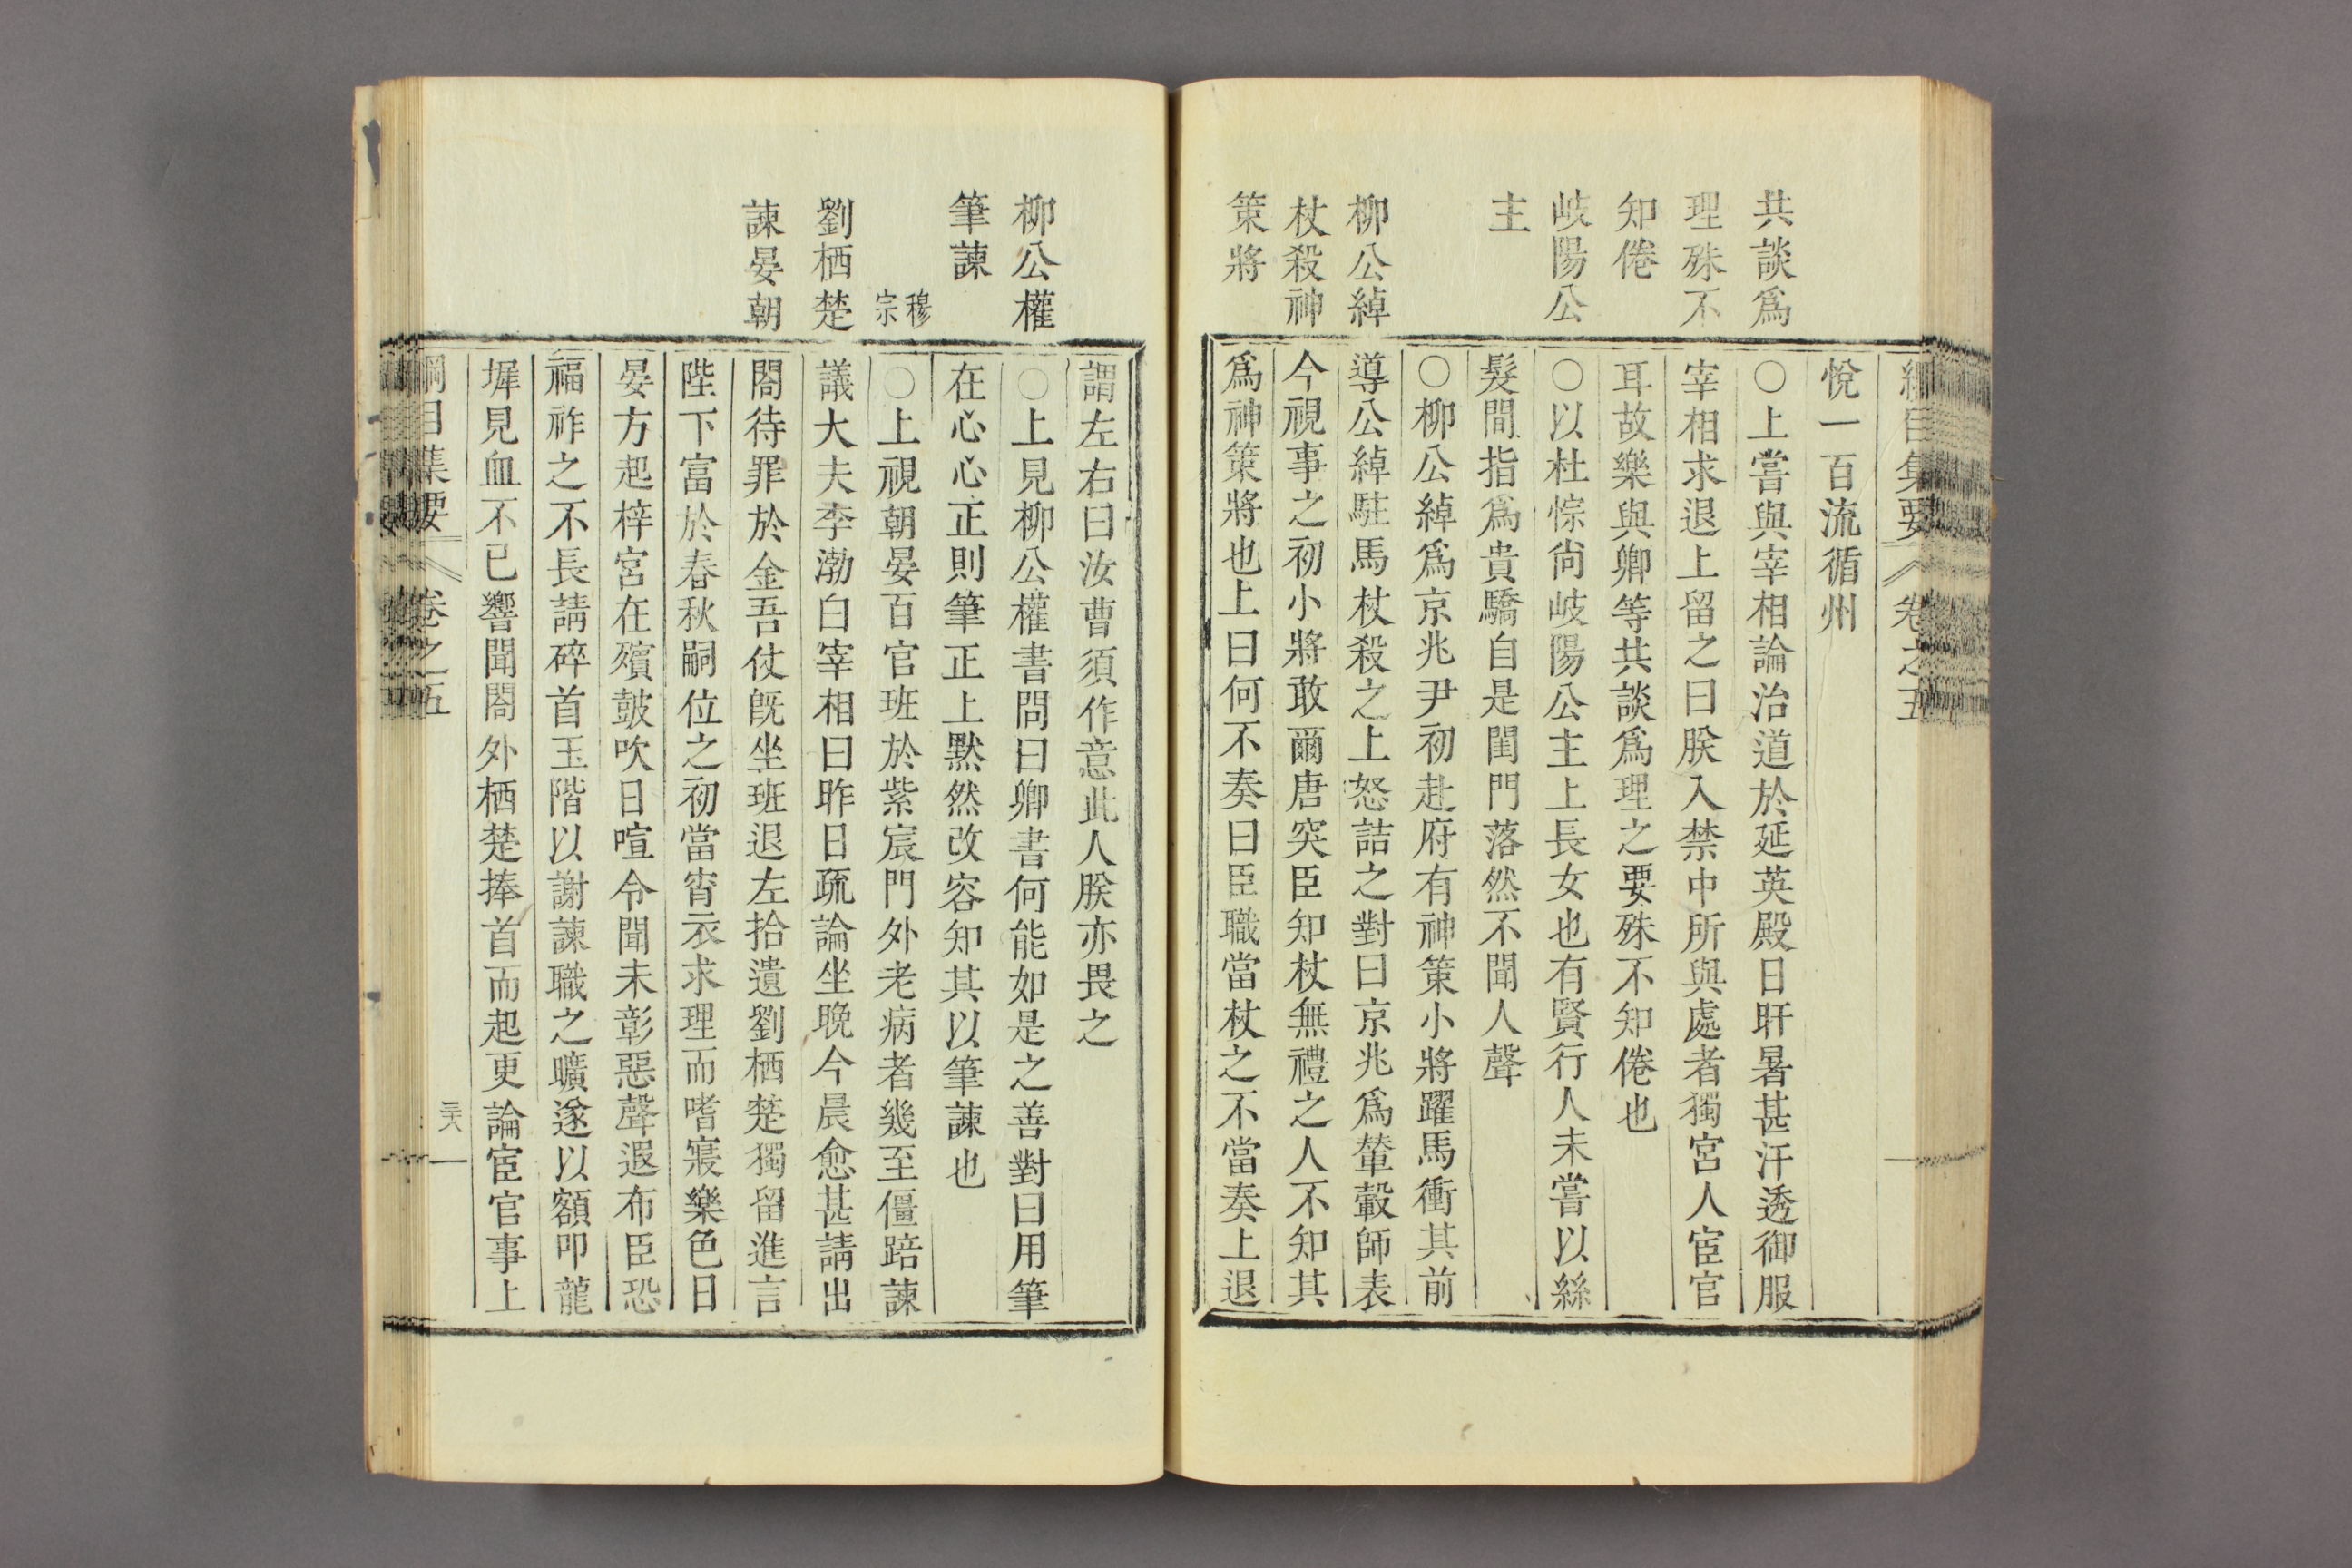 綱目集要 卷之五
共談爲
理殊不
知倦
岐陽公
主
柳公綽
杖殺神
策將
悅一百流循州
○上嘗與宰相論治道於延英殿日旰暑甚汗透御服
宰相求退上留之曰朕入禁中所與處者獨宮人宦官
耳故樂與卿等共談爲理之要殊不知倦也
○以杜悰尙岐陽公主上長女也有賢行人未嘗以絲
髮間指爲貴驕自是閨門落然不聞人聲
○柳公綽爲京兆尹初赴府有神策小將躍馬衝其前
導公綽駐馬杖殺之上怒詰之對曰京兆爲輦轂師表
今視事之初小將敢爾唐突臣知杖無禮之人不知其
爲神策將也上曰何不奏曰臣職當杖之不當奏上退
柳公權
筆諫
穆宗
劉栖楚
諫晏朝
謂左右曰汝曹須作意此人朕亦畏之
○上見柳公權書問曰卿書何能如是之善對曰用筆
在心心正則筆正上黙然改容知其以筆諫也
○上視朝晏百官班於紫宸門外老病者幾至僵踣諫
議大夫李渤白宰相曰昨日疏論坐晚今晨愈甚請出
閤待罪於金吾仗既坐班退左拾遺劉栖楚獨留進言
陛下富於春秋嗣位之初當宵衣求理而嗜寢樂色日
晏方起梓宮在殯鼓吹日喧令聞未彰惡聲遐布臣恐
福祚之不長請碎首玉階以謝諫職之曠遂以額叩龍
墀見血不已響聞閤外栖楚捧首而起更論宦官事上
綱目集要 卷之五 三六